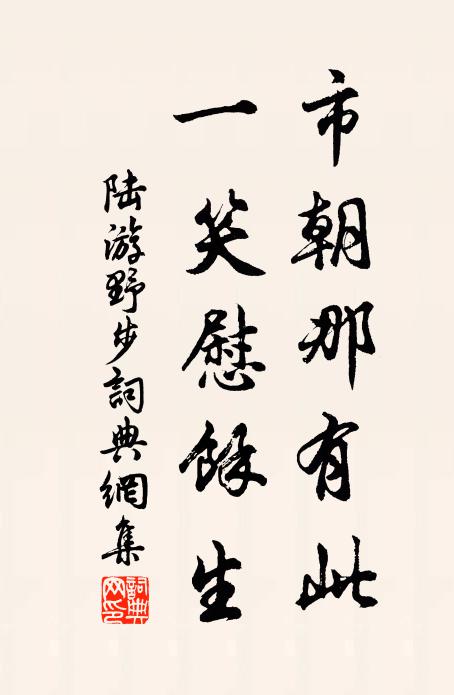 市朝那有此
一笑慰餘生
陸游野步詞典網集
詞典網印